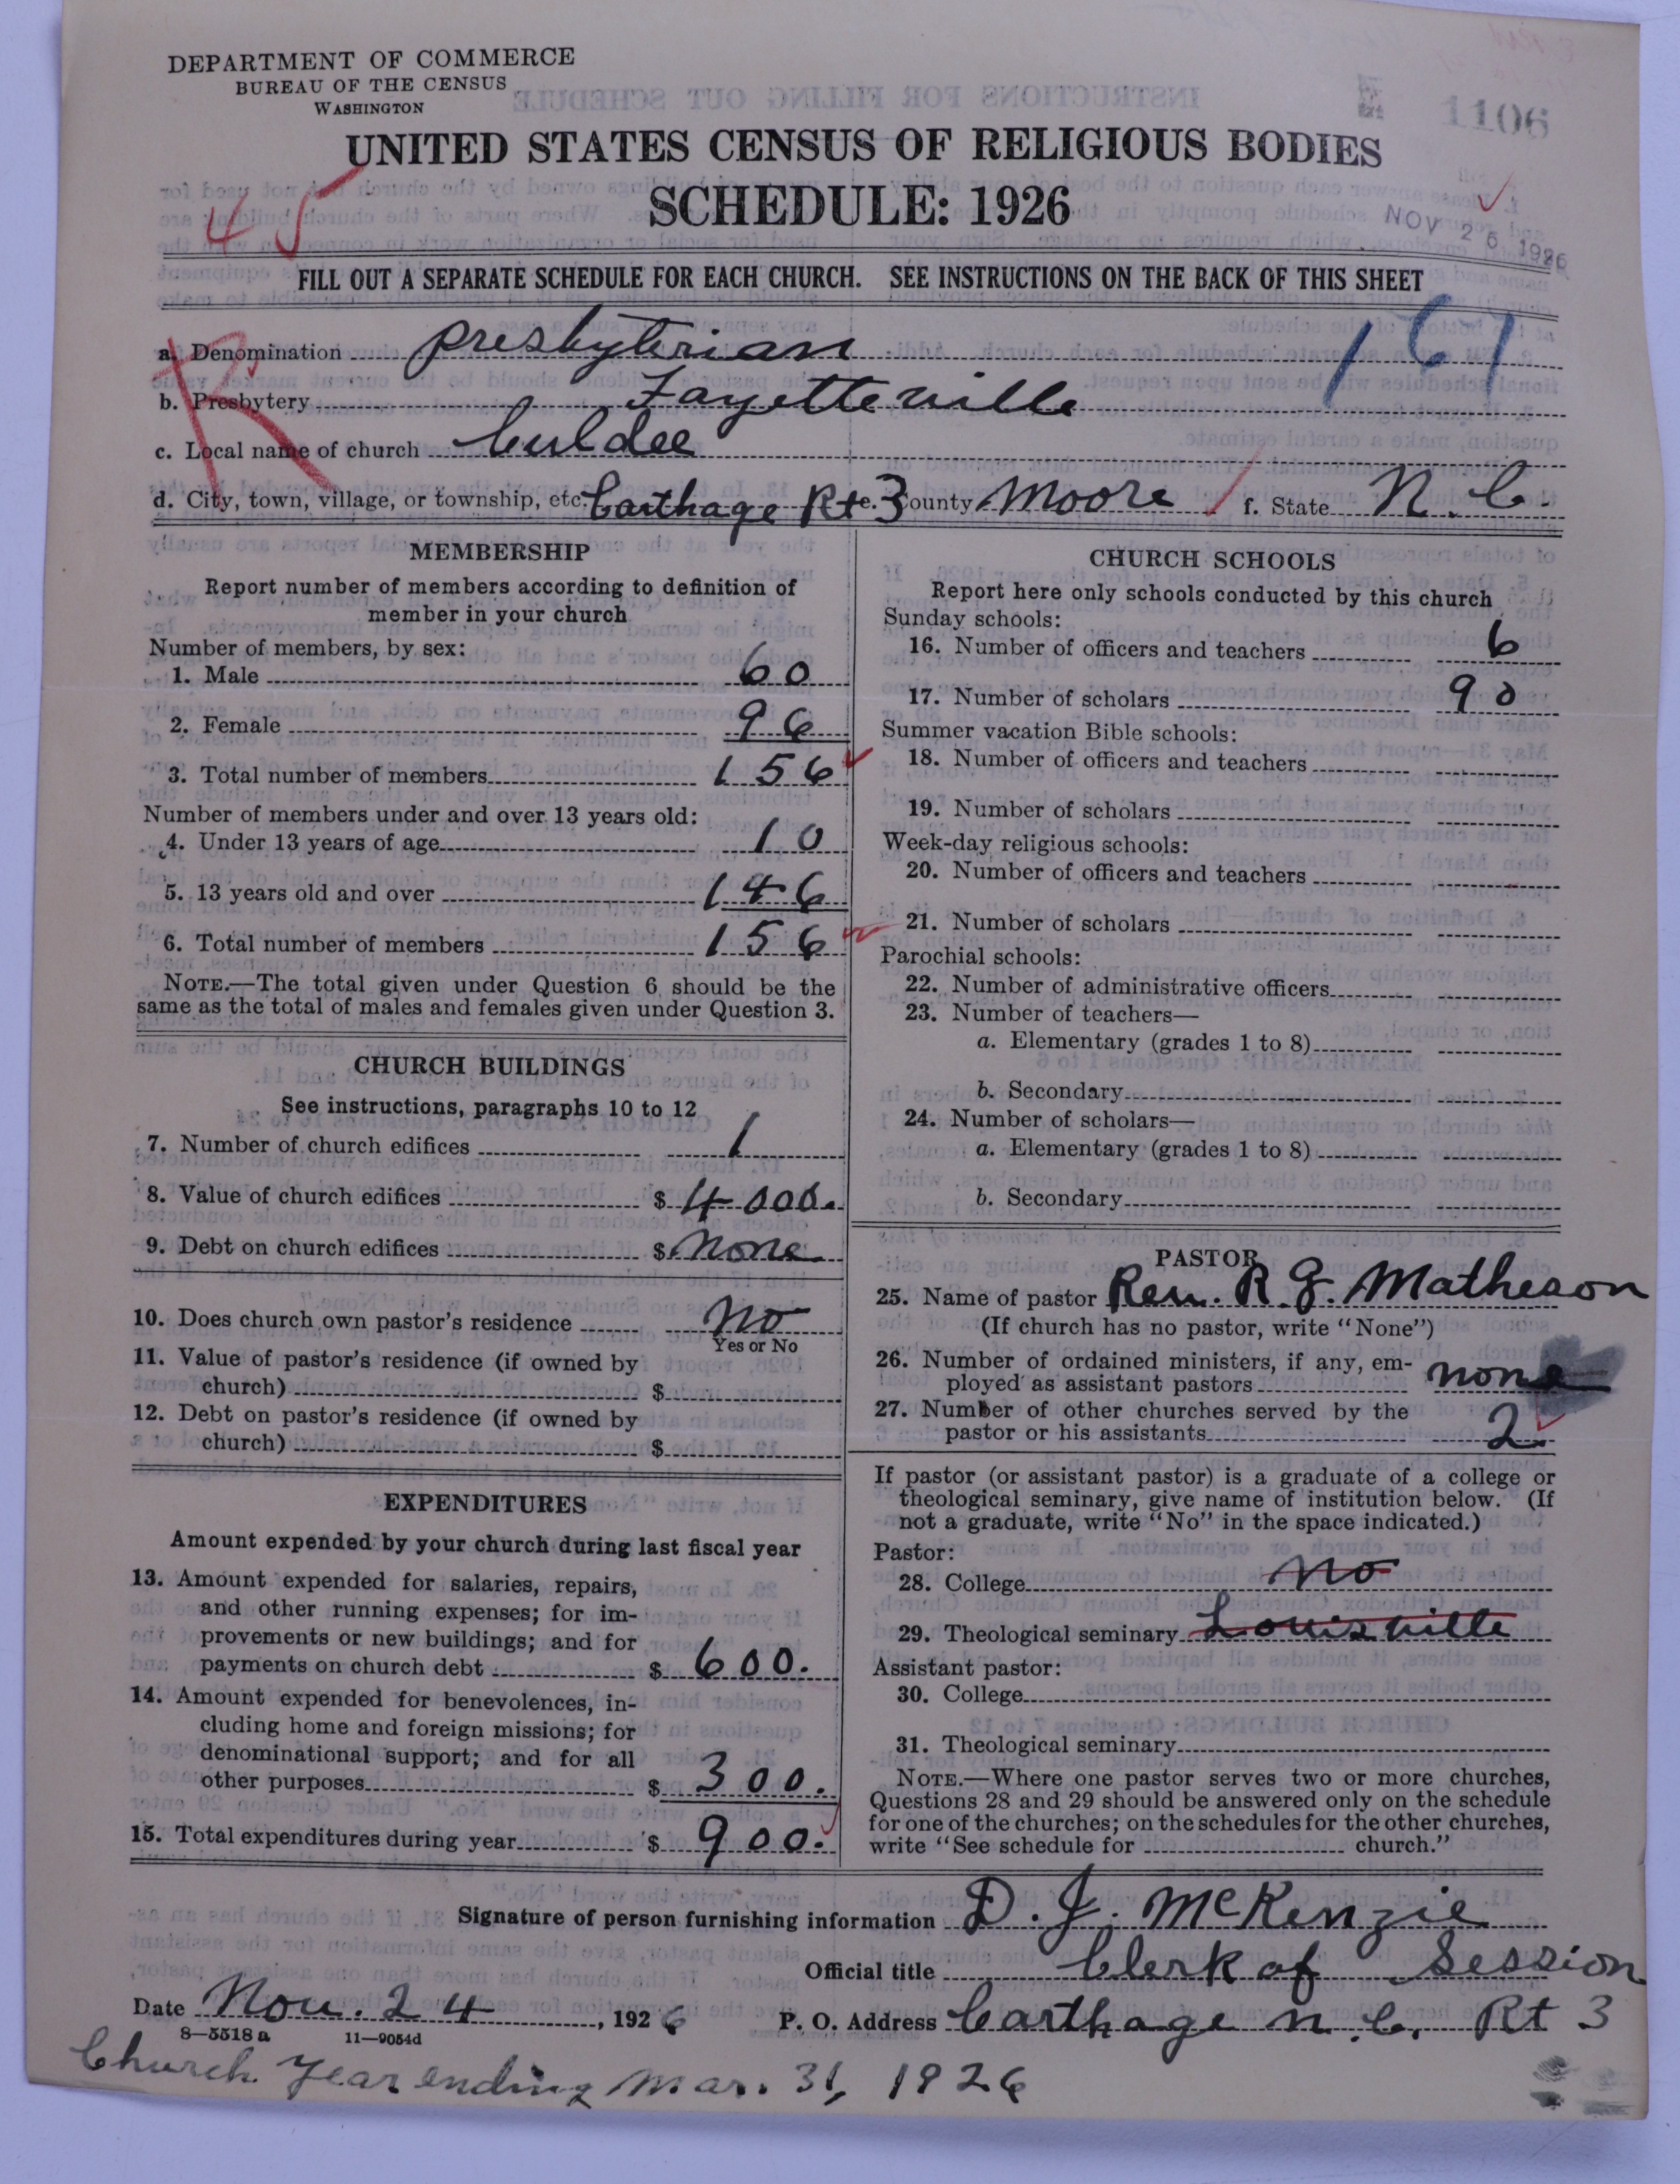 DEPARTMENT OF COMMERCE
BUREAU OF THE CENSUS
WASHINGTON
1106
UNITED STATES CENSUS OF RELIGIOUS BODIES
SCHEDULE: 1926
45
NOV 26 1926
FILL OUT A SEPARATE SCHEDULE FOR EACH CHURCH. SEE INSTRUCTIONS ON THE BACK OF THIS SHEET
R
161
a. Denomination Presbyterian
b. Presbytery Fayetteville
c. Local name of church Culdee
d. City, town, village, or township, etc. Carthage Rt 3 e. County Moore f. State N. C.
MEMBERSHIP
Report number of members according to definition of
member in your church
Number of members, by sex:
1. Male 60
2. Female 96
3. Total number of members 156
Number of members under and over 13 years old:
4. Under 13 years of age 10
5. 13 years old and over 146
6. Total number of members 156
NOTE.—The total given under Question 6 should be the
same as the total of males and females given under Question 3.
CHURCH BUILDINGS
See instructions, paragraphs 10 to 12
7. Number of church edifices 1
8. Value of church edifices $ 4000.
9. Debt on church edifices $ none
10. Does church own pastor's residence no
Yes or No
11. Value of pastor's residence (if owned by
church) $
12. Debt on pastor's residence (if owned by
church) $
EXPENDITURES
Amount expended by your church during last fiscal year
13. Amount expended for salaries, repairs,
and other running expenses; for im-
provements or new buildings; and for
payments on church debt $ 600.
14. Amount expended for benevolences, in-
cluding home and foreign missions; for
denominational support; and for all
other purposes $ 300.
15. Total expenditures during year $ 900.
CHURCH SCHOOLS
Report here only schools conducted by this church
Sunday schools:
16. Number of officers and teachers 6
17. Number of scholars 90
Summer vacation Bible schools:
18. Number of officers and teachers
19. Number of scholars
Week-day religious schools:
20. Number of officers and teachers
21. Number of scholars
Parochial schools:
22. Number of administrative officers
23. Number of teachers—
a. Elementary (grades 1 to 8)
b. Secondary
24. Number of scholars—
a. Elementary (grades 1 to 8)
b. Secondary
PASTOR
25. Name of pastor Rev. R. G. Matheson
(If church has no pastor, write "None")
26. Number of ordained ministers, if any, em-
ployed as assistant pastors none
27. Number of other churches served by the
pastor or his assistants 2
If pastor (or assistant pastor) is a graduate of a college or
theological seminary, give name of institution below. (If
not a graduate, write "No" in the space indicated.)
Pastor:
28. College No
29. Theological seminary Louisville
Assistant pastor:
30. College
31. Theological seminary
NOTE.—Where one pastor serves two or more churches,
Questions 28 and 29 should be answered only on the schedule
for one of the churches; on the schedules for the other churches,
write "See schedule for church."
Signature of person furnishing information D. J. McKenzie
Official title Clerk of Session
Date Nov. 24, 1926 P. O. Address Carthage N. C. Rt 3
8—5518 a 11—9054d
Church Year ending Mar. 31, 1926